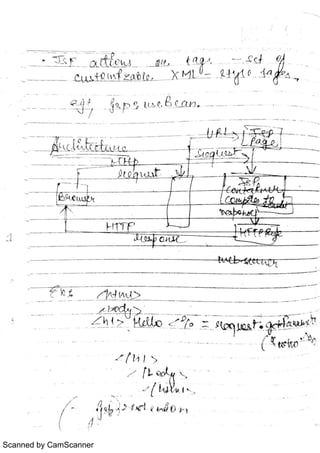 • JSP actions are tags - set of
customizable, XML - style tags.
eg:, jsp: useBean.
Architecture
URL> JSP
Page
HTTP
request
request
Browser
JSP
Container
response
HTTP
response
HTTP Page
web-server
<html>
<body>
<h1> Hello <% = request.getParameter
("who" %>
</h1>
</body
</html>
Scanned by CamScanner